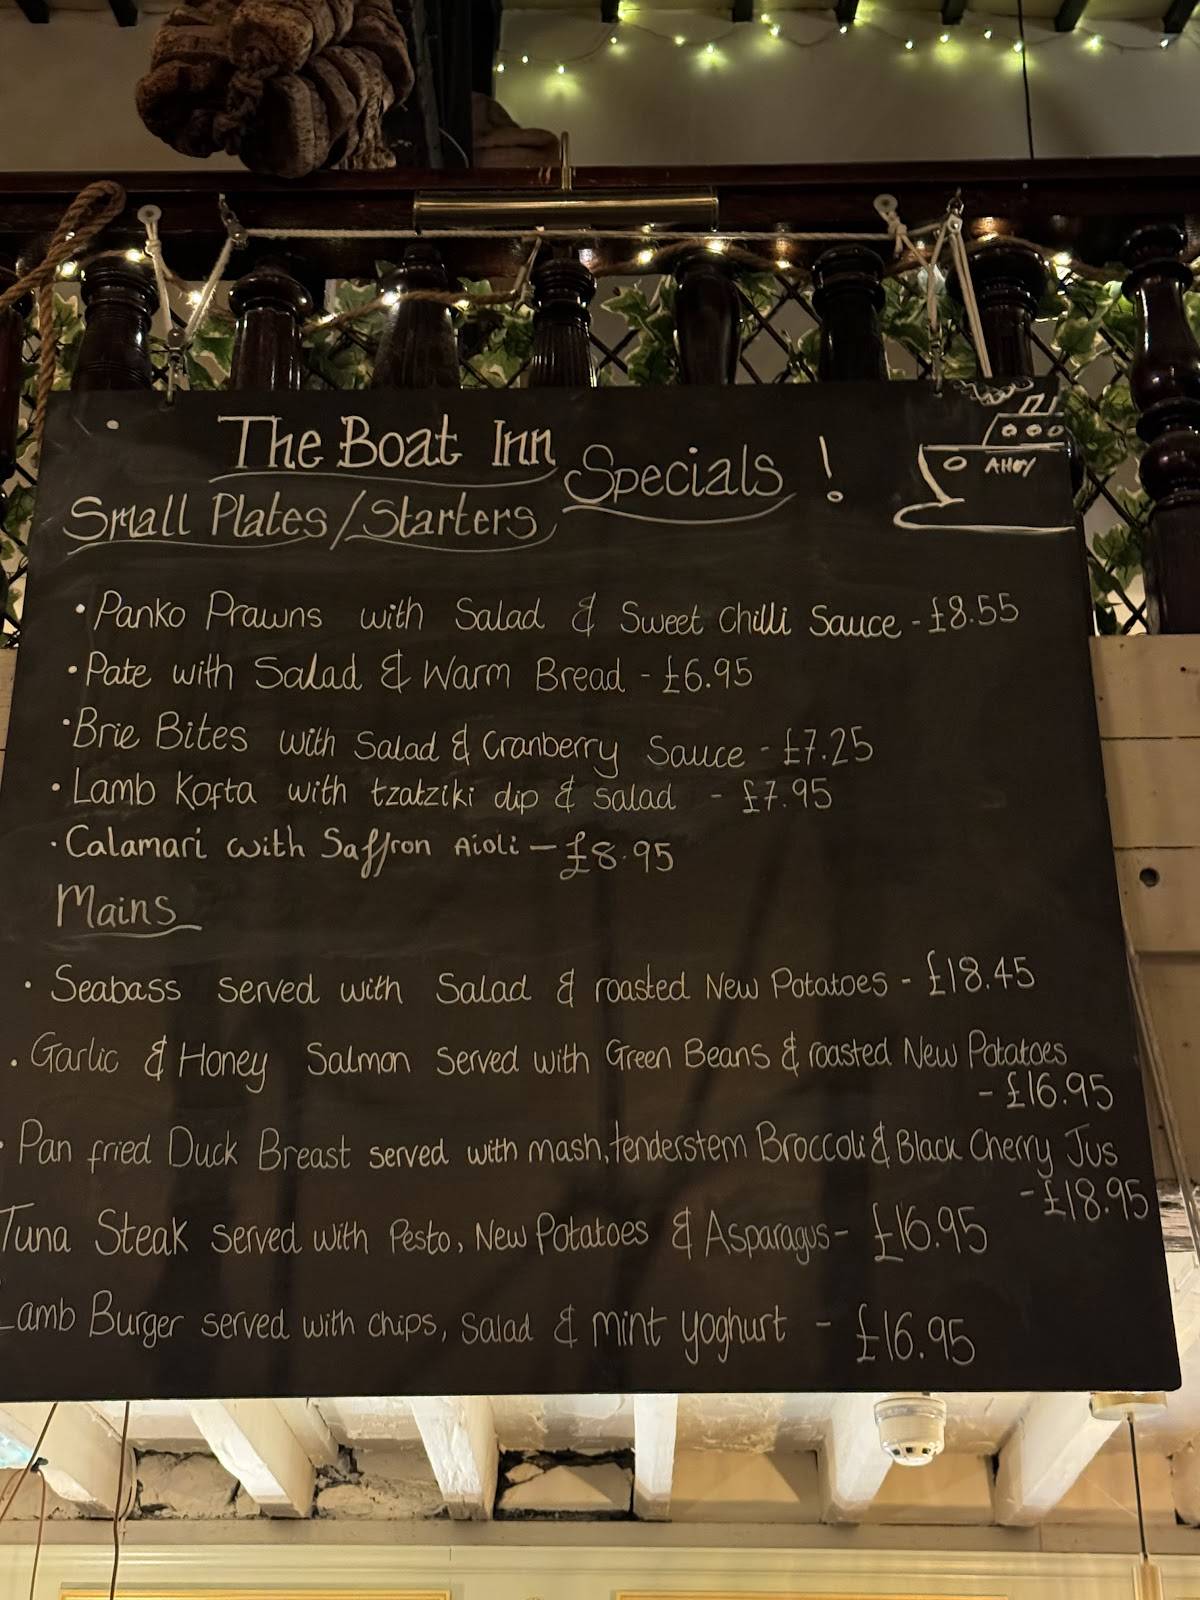 The Boat Inn Specials!
AHOY
Small Plates/Starters
• Panko Prawns with Salad & Sweet Chilli Sauce - £8.55
• Pate with Salad & Warm Bread - £6.95
• Brie Bites with Salad & Cranberry Sauce - £7.25
• Lamb Kofta with tzatziki dip & salad - £7.95
• Calamari with Saffron Aioli - £8.95
Mains
• Seabass served with Salad & roasted New Potatoes - £18.45
• Garlic & Honey Salmon served with Green Beans & roasted New Potatoes
- £16.95
• Pan fried Duck Breast served with mash, tenderstem Broccoli & Black Cherry Jus
- £18.95
Tuna Steak served with Pesto, New Potatoes & Asparagus - £16.95
Lamb Burger served with chips, Salad & mint yoghurt - £16.95